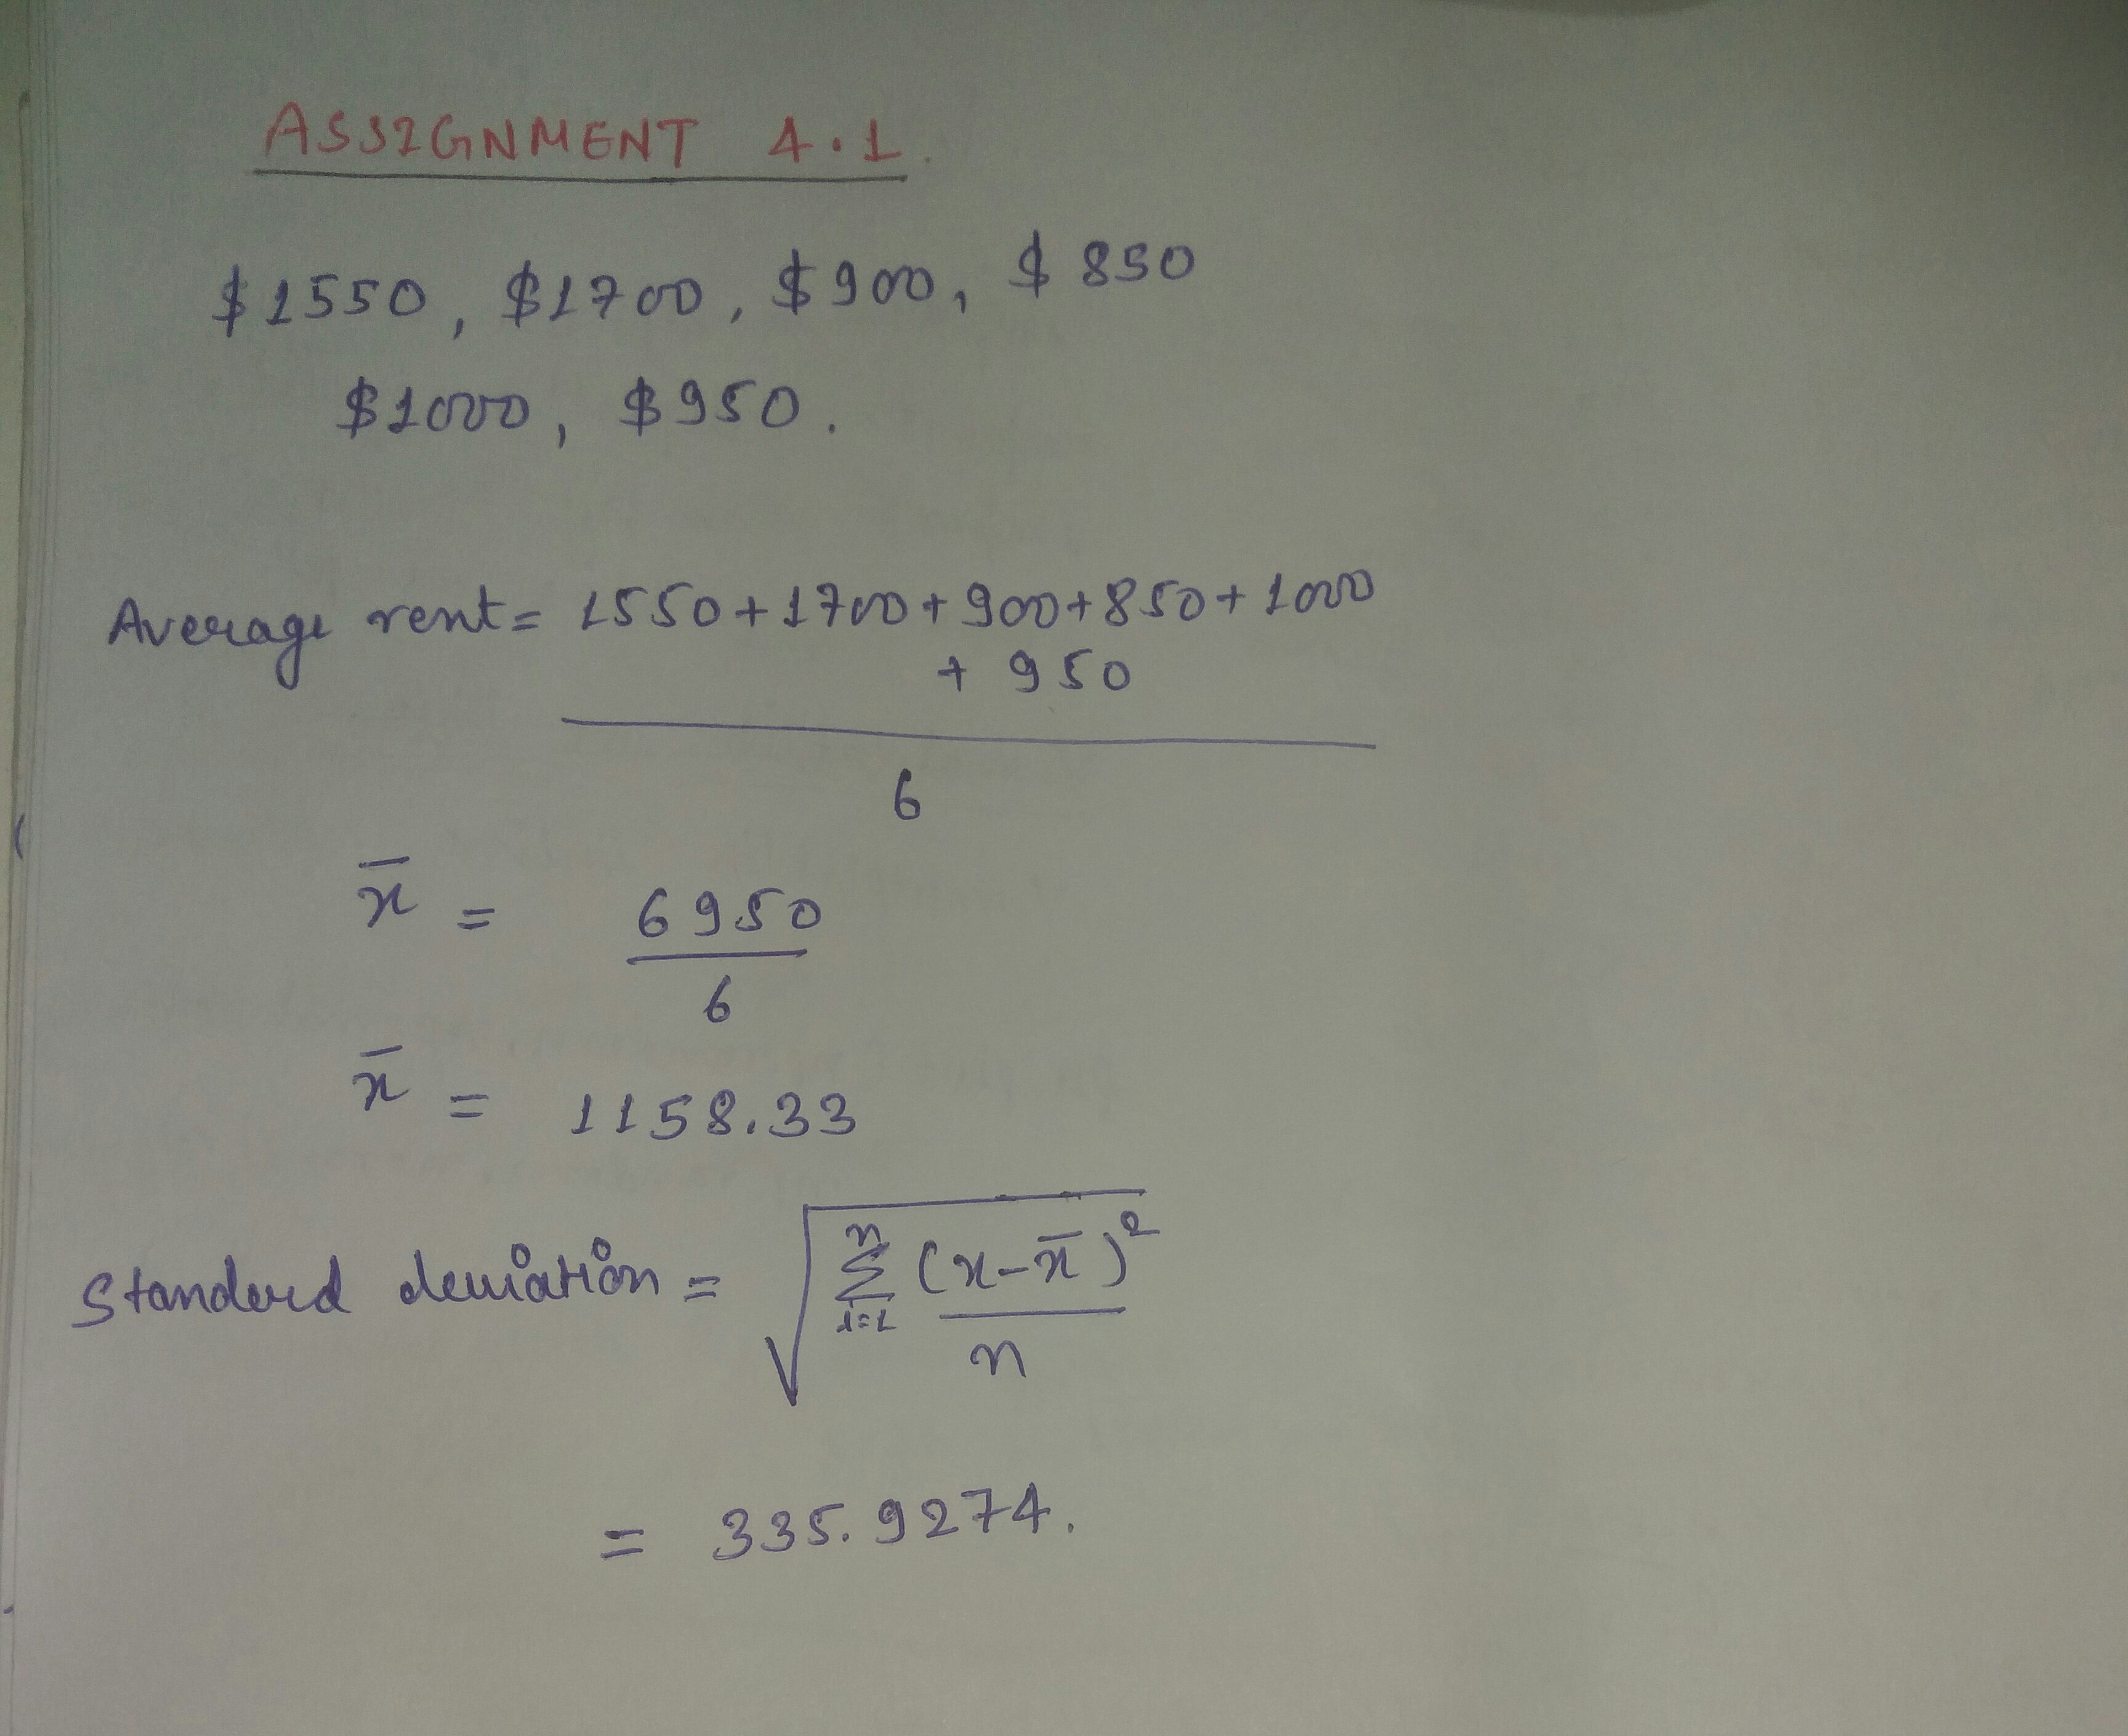 ASSIGNMENT 4.1.
$1550, $1700, $900, $850
$1000, $950.
Average rent = 1550+1700+900+850+1000
+ 950
6
x̄ = 6950
6
x̄ = 1158.33
Standard deviation = √ n Σ i=1 (x-x̄)²
n
= 335.9274.